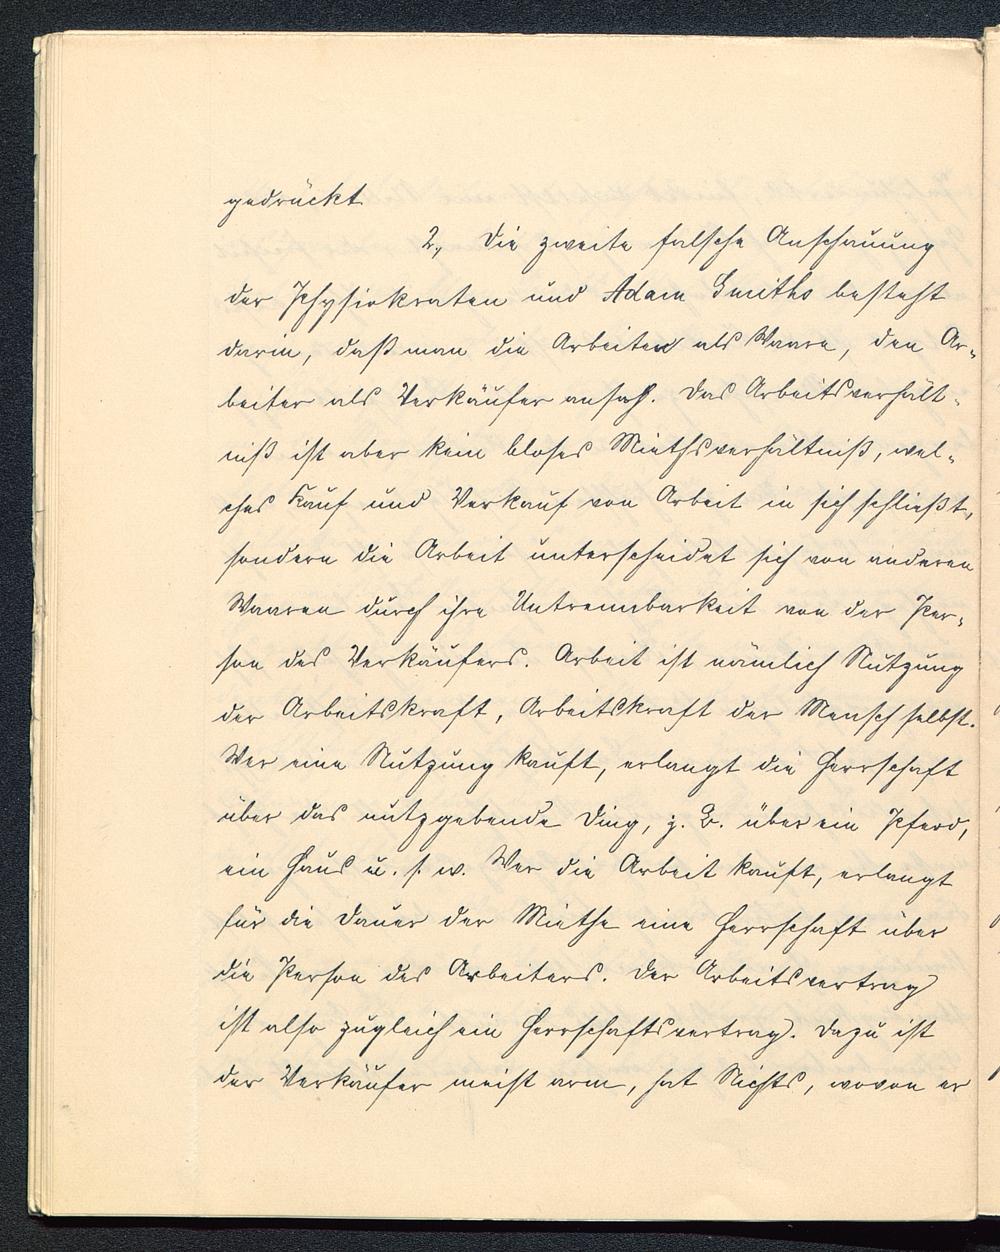 gedrückt
2., Die zweite falsche Anschauung
der Physiokraten und Adam Smiths besteht
darin, daß man die Arbeiten als Waare, den Ar-
beiter als Verkäufer ansah. Das Arbeitsverhält-
niß ist aber kein bloses Miethsverhältniß, wel-
ches Kauf und Verkauf von Arbeit in sich schließt,
sondern die Arbeit unterscheidet sich von anderen
Waaren durch ihre Untrennbarkeit von der Per-
son des Verkäufers. Arbeit ist nämlich Nutzung
der Arbeitskraft, Arbeitskraft der Mensch selbst.
Wer eine Nutzung kauft, erlangt die Herrschaft
über das nutzgebende Ding, z. B. über ein Pferd,
ein Haus u. s. w. Wer die Arbeit kauft, erlangt
für die Dauer der Miethe eine Herrschaft über
die Person des Arbeiters. Der Arbeitsvertrag
ist also zugleich ein Herrschaftsvertrag. Dazu ist
der Verkäufer meist arm, hat Nichts, wovon er